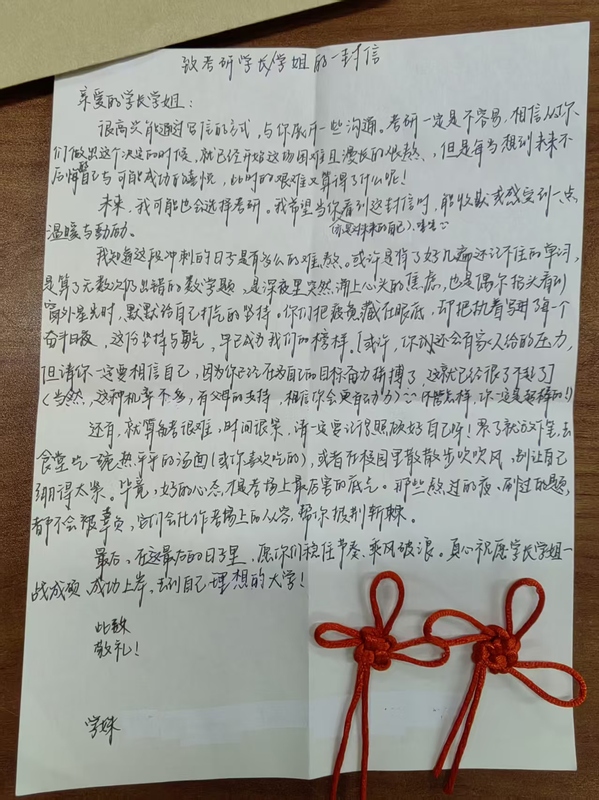 致考研学长学姐的一封信
亲爱的学长学姐：
很高兴能通过写信的方式，与你展开一些沟通。考研一定是不容易，相信从你
们做出这个决定的时候，就已经开始这场困难且漫长的煎熬、但是每当想到未来不
后悔自己与可能成功的喜悦，此时的艰难又算得了什么呢！
未来，我可能也会选择考研。我希望当你看到这封信时，能收获或感受到一点
温暖与勉励。(你是对未来的自己)
我知道这段冲刺的日子是有多么的难熬。或许是背了好几遍还记不住的单词，
是算了无数次仍出错的数学题，是深夜里突然涌上心头的焦虑，也是偶尔抬头看到
窗外星光时，默默给自己打气的坚持。你们把疲惫藏在眼底，却把执着写进了每一个
奋斗日夜，这份坚持与勇气，早已成为我们的榜样。[或许，你还会有家人给的压力，
但请你一定要相信自己，因为你已经在为自己的目标奋力拼搏了，这就已经很了不起了]
(当然，这种机率不多，有父母的支持，相信你会更有动力) 不管怎样，你一定是超棒的！
还有，就算备考很难，时间很紧，请一定要记得照顾好自己呀！累了就放下笔，去
食堂吃一碗热乎乎的汤面(或你喜欢吃的)，或者在校园里散散步吹吹风，别让自己
绷得太紧。毕竟，好的心态才是考场上最厉害的底气。那些熬过的夜、刷过的题，
都不会被辜负，它们会化作考场上的从容，帮你披荆斩棘。
最后，在这最后的日子里，愿你们稳住节奏，乘风破浪。真心祝愿学长学姐一
战成硕、成功上岸，去到自己理想的大学！
此致
敬礼！
学妹